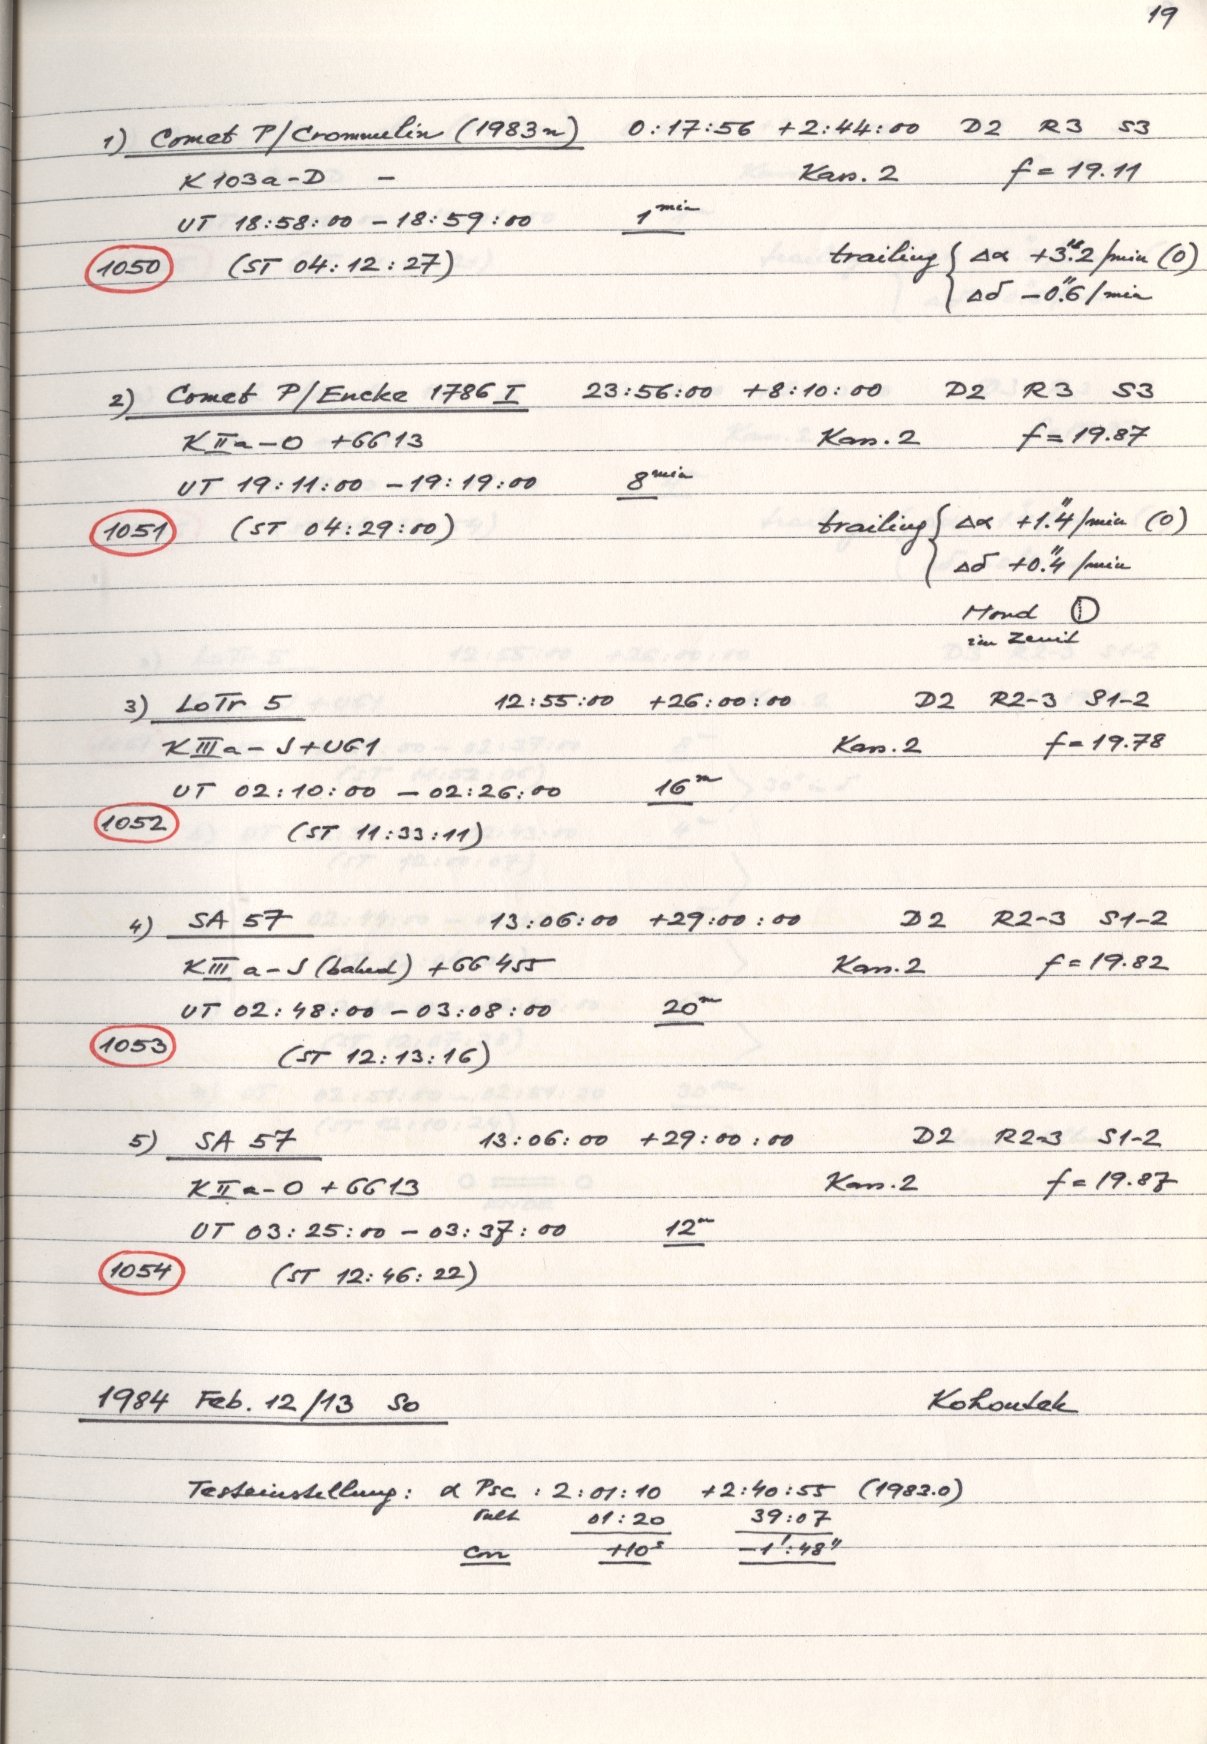 19
1) Comet P/Crommelin (1983n) 0:17:56 +2:44:00 D2 R3 S3
K 103a-D - Kass. 2 f = 19.11
UT 18:58:00 - 18:59:00 1 min
1050 (ST 04:12:27) trailing { Δα +3".2/min (0)
Δδ -0".6/min
2) Comet P/Encke 1786 I 23:56:00 +8:10:00 D2 R3 S3
K IIa-O +GG13 Kass. 2 f = 19.87
UT 19:11:00 - 19:19:00 8 min
1051 (ST 04:29:00) trailing { Δα +1".4/min (0)
Δδ +0".4/min
Mond
im Zenit
3) LoTr 5 12:55:00 +26:00:00 D2 R2-3 S1-2
K IIIa-J + UG1 Kass. 2 f = 19.78
UT 02:10:00 - 02:26:00 16 m
1052 (ST 11:33:11)
4) SA 57 13:06:00 +29:00:00 D2 R2-3 S1-2
K IIIa-J (baked) + GG 455 Kass. 2 f = 19.82
UT 02:48:00 - 03:08:00 20 m
1053 (ST 12:13:16)
5) SA 57 13:06:00 +29:00:00 D2 R2-3 S1-2
K IIa-O + GG13 Kass. 2 f = 19.87
UT 03:25:00 - 03:37:00 12 m
1054 (ST 12:46:22)
1984 Feb. 12/13 So Kohoutek
Testeinstellung: α Psc : 2:01:10 +2:40:55 (1983.0)
01:20 39:07
Corr +10s -1':48"